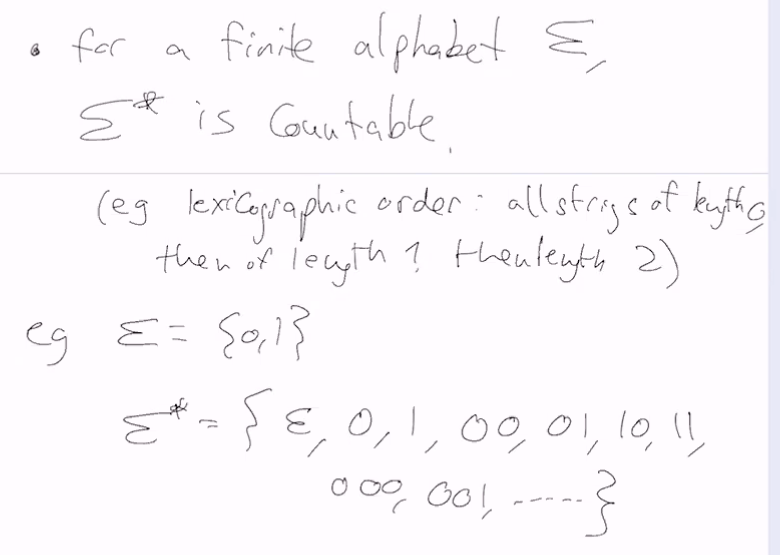 • for a finite alphabet Σ,
Σ* is Countable.
(eg lexicographic order: all strigs of length 0,
then of length 1 then length 2)
eg Σ = {0,1}
Σ* = { ε, 0, 1, 00, 01, 10, 11,
000, 001, ----- }